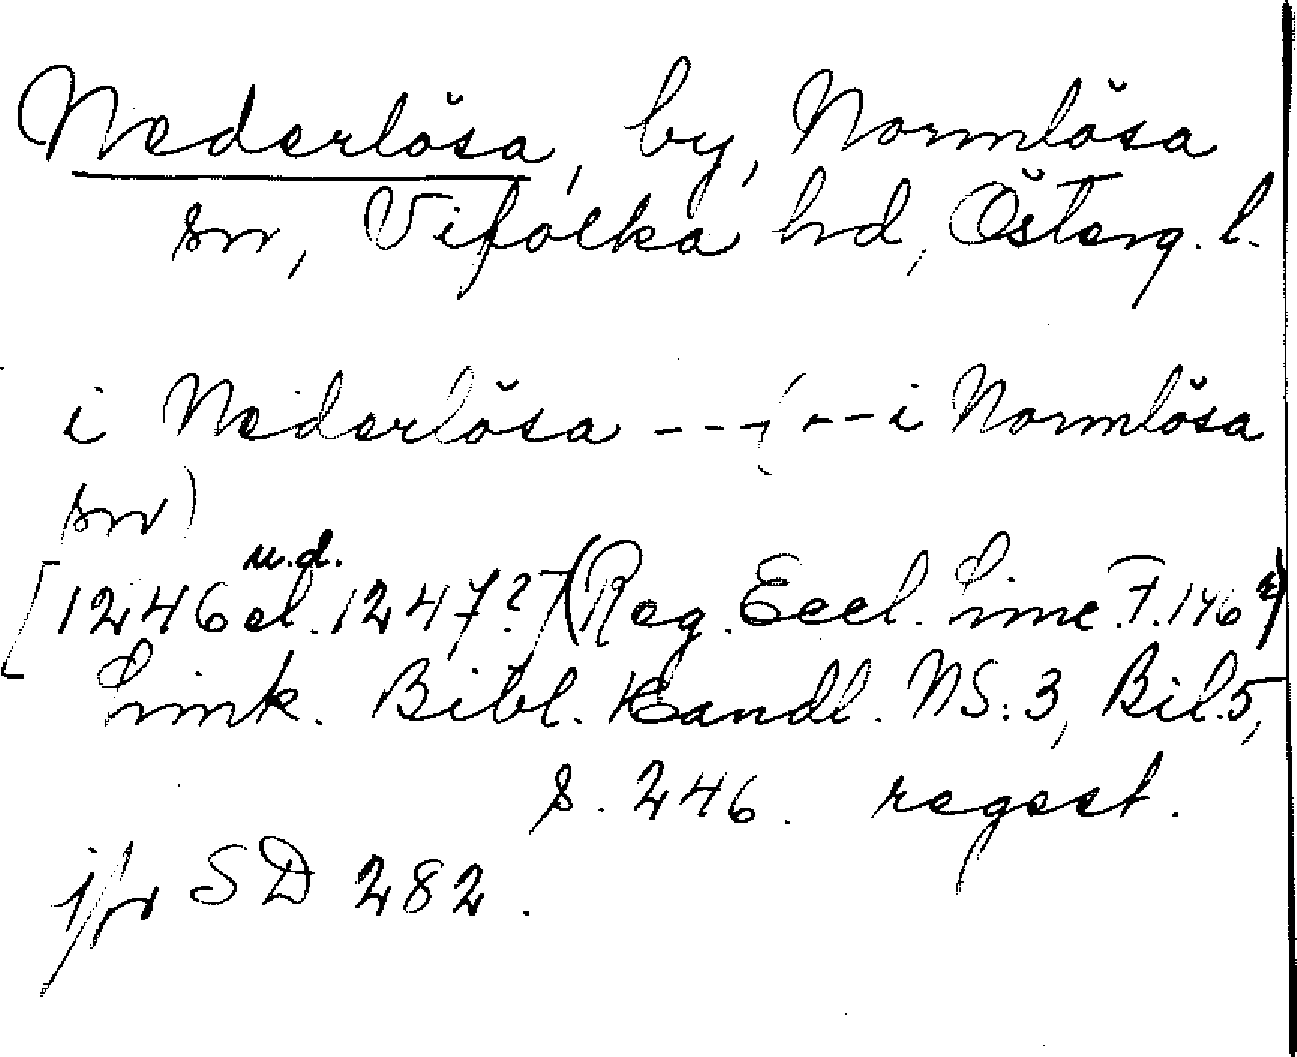 Nederlösa, by, Normlösa
sn, Vifolka hd, Österg. l.
i Nederlösa ---(--- i Normlösa
sn)
u.d.
[1246 el. 1247?] (Reg. Eccl. Linc. F. 146 r)
Link. Bibl. Handl. NS: 3, Bil. 5,
s. 246. regest.
jfr SD 282.